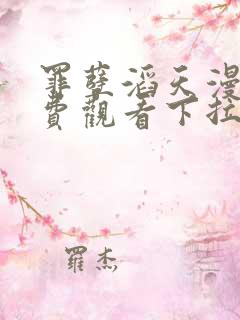 罪孽滔天漫
費觀看下拉
羅杰